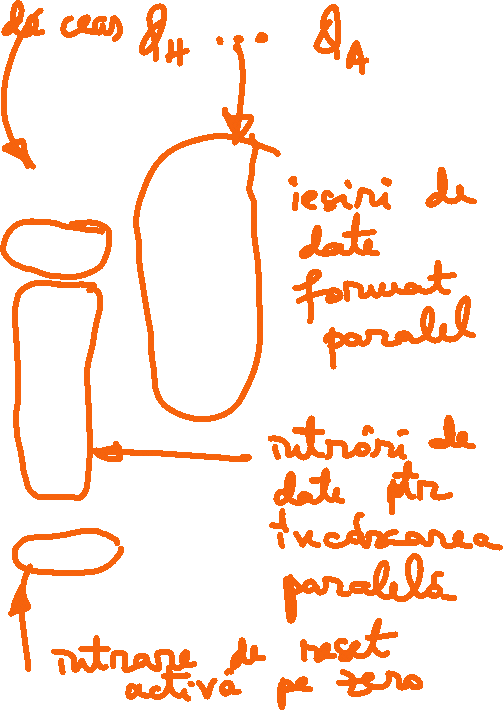 de ceas Q_H ... Q_A
iesiri de
date
format
paralel
intrări de
date ptr
încărcarea
paralelă
intrare de reset
activă pe zero